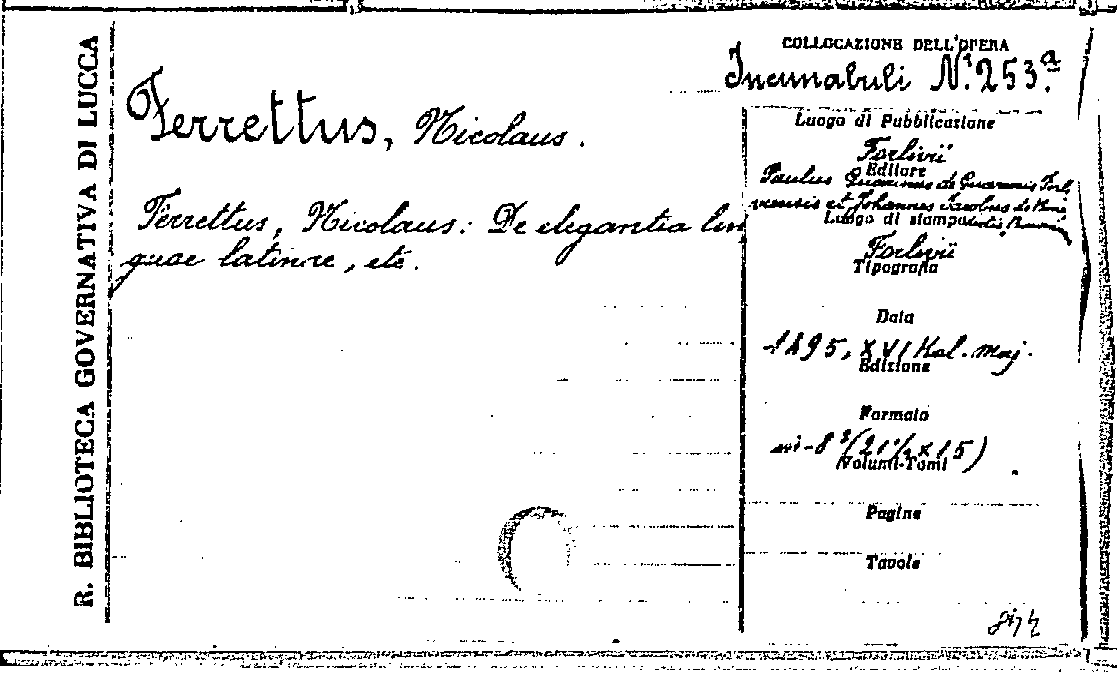 R. BIBLIOTECA GOVERNATIVA DI LUCCA
Ferrettus, Nicolaus.
Ferrettus, Nicolaus: De elegantia lin
guae latinae, etc.
COLLOCAZIONE DELL'OPERA
Incunabuli N.º 253.a
Luogo di Pubblicazione
Forlivii
Editore
Paulus Guarinus de Guarinis Forli
viensis et Johannes Jacobus de
Luogo di stampa
Forlivii
Tipografia
Data
1495, XVI Kal. maj.
Edizione
Formato
in-8º (21½×15)
Volumi-Tomi
Pagine
Tavole